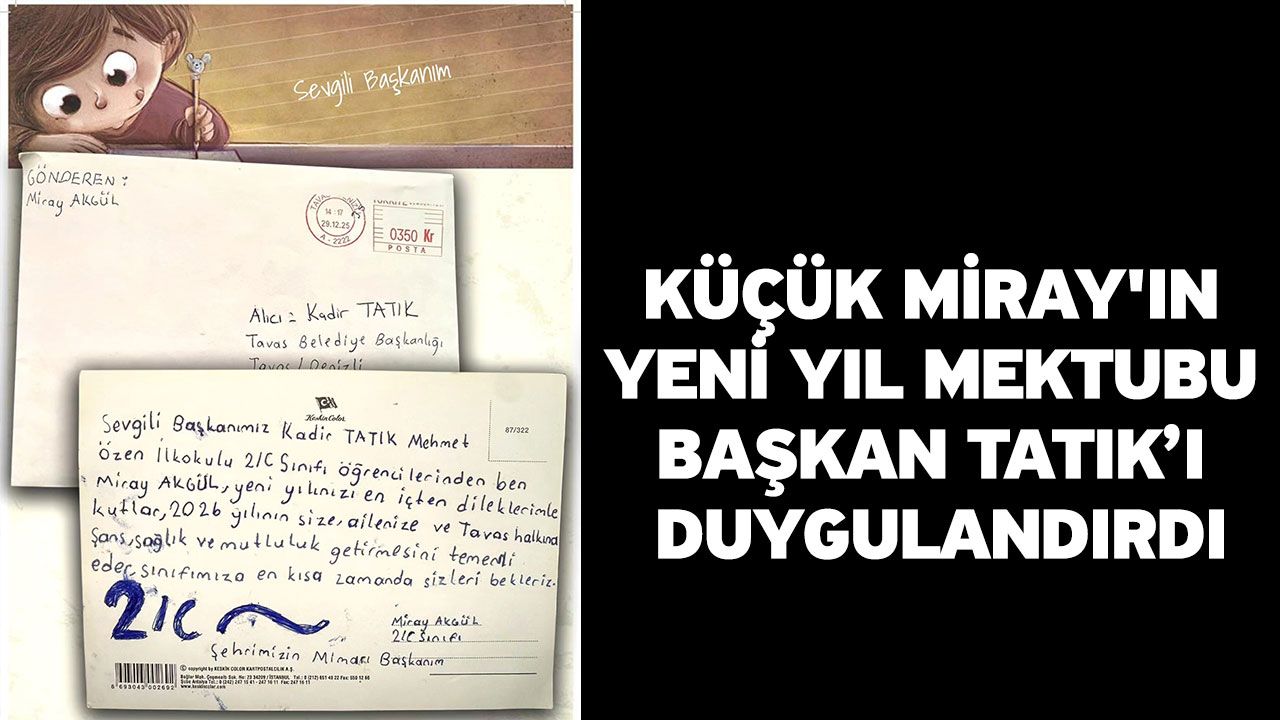 Sevgili Başkanım
GÖNDEREN:
Miray AKGÜL
14:17
29.12.25
A - 2222
0350 Kr
POSTA
Alıcı: Kadir TATIK
Tavas Belediye Başkanlığı
Tavas / Denizli
Keskin Color
87/322
Sevgili Başkanımız Kadir TATIK Mehmet
Özen İlkokulu 2/C Sınıfı öğrencilerinden ben
Miray AKGÜL, yeni yılınızı en içten dileklerimle
kutlar, 2026 yılının size, ailenize ve Tavas halkına
Şans, sağlık ve mutluluk getirmesini temenni
eder, sınıfımıza en kısa zamanda sizleri bekleriz.
2/C
Miray AKGÜL
2/C Sınıfı
Şehrimizin Mimarı Başkanım
© copyright by KESKİN COLOR KARTPOSTALCILIK A.Ş.
8 693043 002692
www.keskincolor.com
KÜÇÜK MİRAY'IN
YENİ YIL MEKTUBU
BAŞKAN TATIK’I
DUYGULANDIRDI